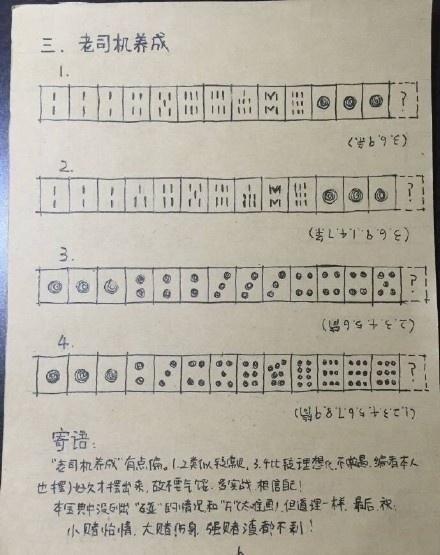 三、老司机养成
1.
?
(3.6.9条)
2.
?
(3.6.9.1.4.7条)
3.
?
(2.3.4.5.6筒)
4.
?
(1.2.3.4.5.6.7.8.9筒)
寄语:
"老司机养成"有点偏。1.2类似较常规,3.4比较理想化,不常遇,编者本人
也摆了好久才摆出来,故不要气馁,多实战,相信自己!
本宝典中没列出"碰"的情况和"万"(太难画),但道理一样。最后,祝:
小赌怡情,大赌伤身,强赌渣都不剩!
6